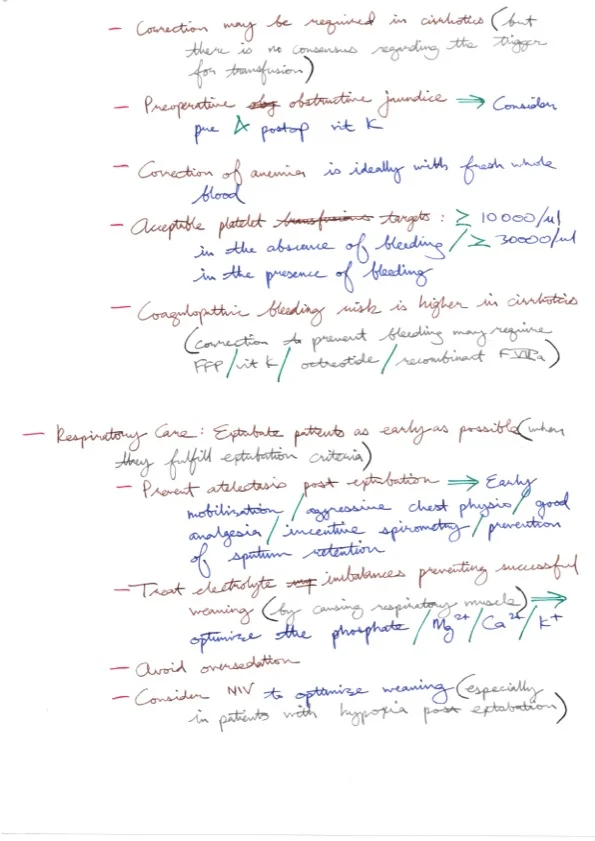 — Correction may be required in cirrhotics (but
there is no consensus regarding the trigger
for transfusion)
— Preoperative obstructive jaundice ⇒ Consider
pre & postop vit K
— Correction of anemia is ideally with fresh whole
blood
— Acceptable platelet transfusions targets : ≥ 10000/ul
in the abscence of bleeding / ≥ 30000/ul
in the presence of bleeding
— Coagulopathic bleeding risk is higher in cirrhotics
(correction to prevent bleeding may require
FFP / vit K / octreotide / recombinant F VIIa)
— Respiratory Care : Extubate patients as early as possible (when
they fulfill extubation criteria)
— Prevent atelectasis post extubation ⇒ Early
mobilization / aggressive chest physio / good
analgesia / incentive spirometry / prevention
of sputum retention
— Treat electrolyte imbalances preventing successful
weaning (by causing respiratory muscle) ⇒
optimize the phosphate / Mg²⁺ / Ca²⁺ / K⁺
— Avoid oversedation
— Consider NIV to optimize weaning (especially
in patients with hypoxia post extubation)